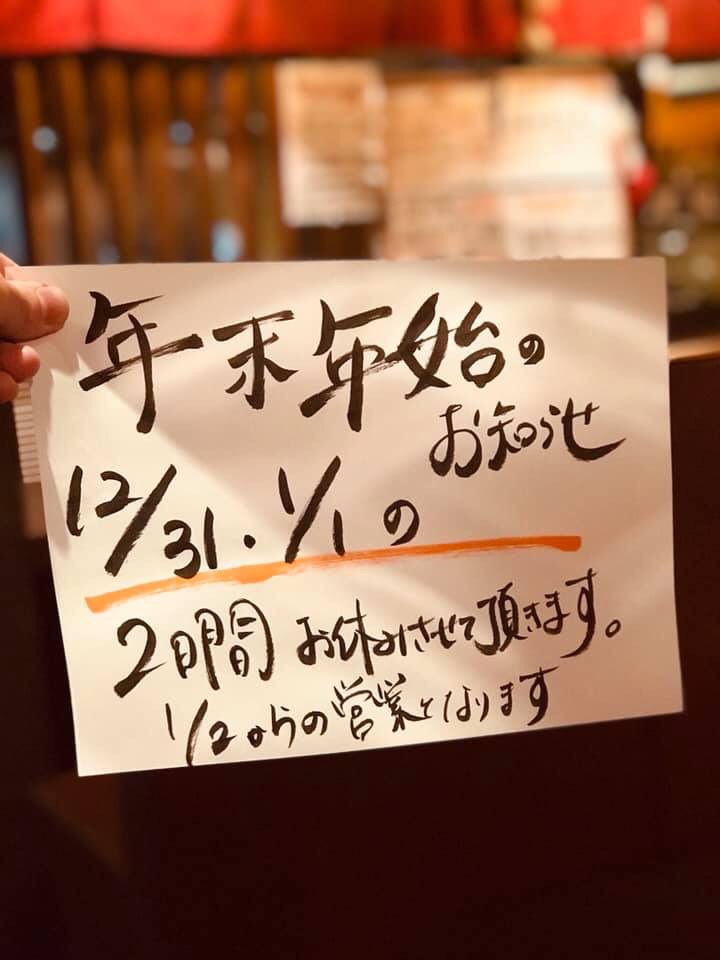 年末年始の
お知らせ
12/31・1/1の
2日間お休みさせて頂きます。
1/2からの営業となります